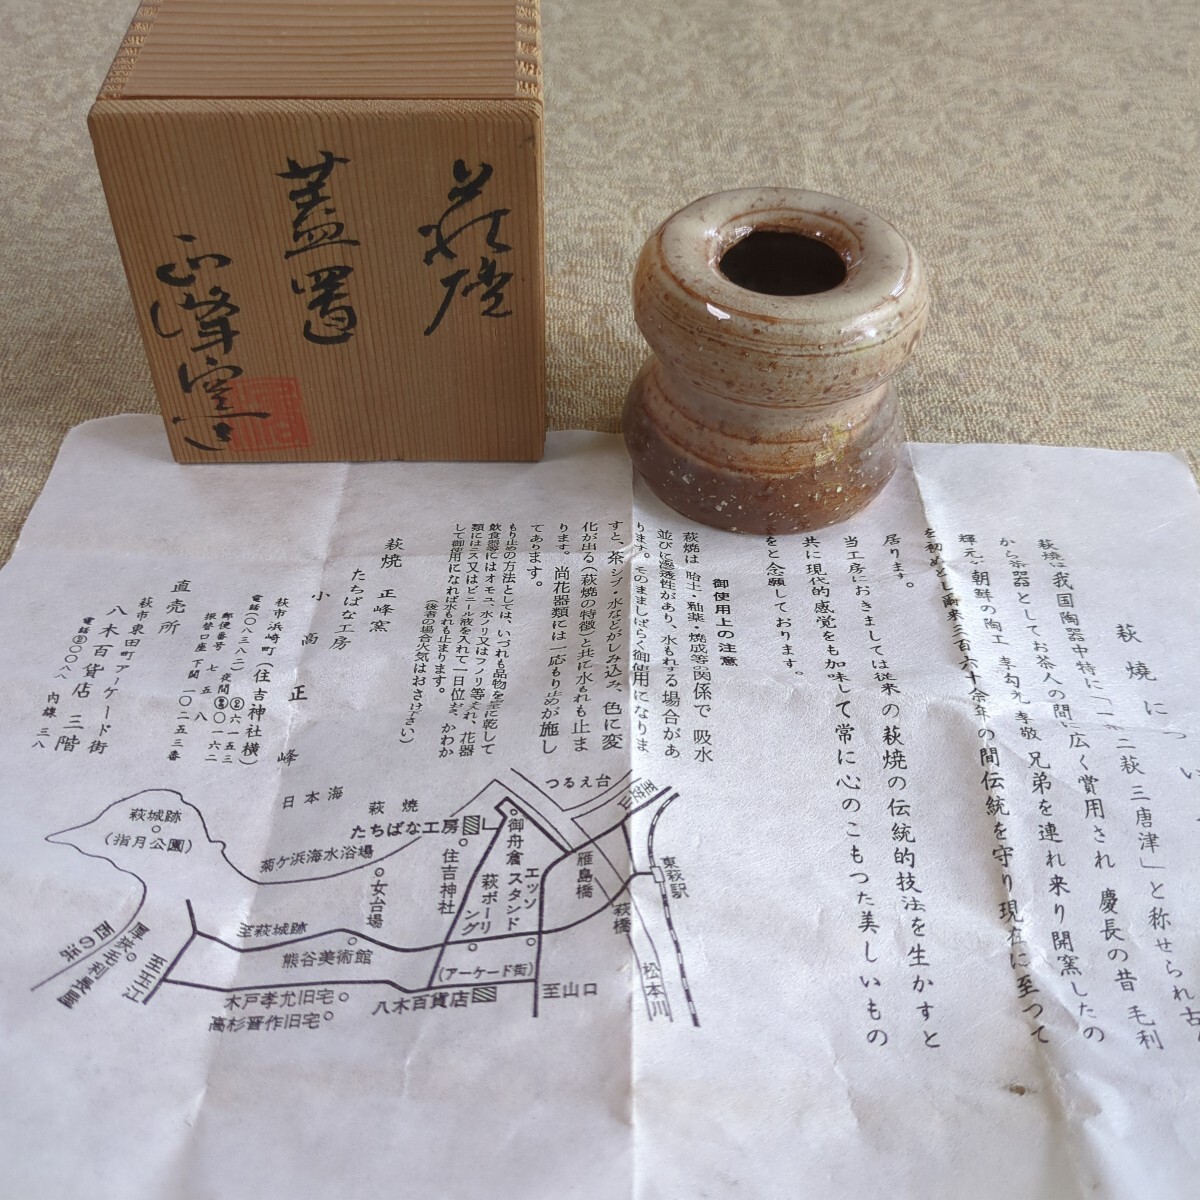 萩焼
蓋置
正峰窯
萩焼につい
萩焼は我国陶器中特に「一楽二萩三唐津」と称せられ古
から茶器としてお茶人の間に広く賞用され 慶長の昔 毛利
輝元が朝鮮の陶工 李勺光 李敬 兄弟を連れ来り開窯したの
を初めとし爾来三百六十余年の間伝統を守り現在に至つて
居ります。
当工房におきましては従来の萩焼の伝統的技法を生かすと
共に現代的感覚をも加味して常に心のこもつた美しいもの
をと念願しております。
御使用上の注意
萩焼は 胎土・釉薬・焼成等の関係で 吸水
並びに浸透性があり、水もれする場合があ
ります。そのまましばらく御使用になりま
すと、茶シブ・水などがしみ込み、色に変
化が出る(萩焼の特徴)と共に水もれも止ま
ります。 尚花器類には一応もり止めが施し
てあります。
もり止めの方法としては、いづれも品物を充に乾して
飲食器等にはオモユ、水ノリ又はフノリ等を入れ、花器
類にはニス又はビニール液を入れて一日位おき、かわか
して御使用になれば水もれも止まります。
(後者の場合火気はおさけ下さい)
萩焼 正峰窯
たちばな工房
小高正峰
萩市浜崎町(住吉神社横)
電話(〇八三八二) ②六一五三
夜間②〇一六二
郵便番号 七五八
振替口座 下関 一〇二五三番
直売所
萩市東田町アーケード街
八木百貨店 三階
電話②〇〇八八 内線 三八
日本海
萩城跡
(指月公園)
菊ケ浜海水浴場
萩焼
たちばな工房
住吉神社
女台場
御舟倉
エッソスタンド
萩ボーリング
つるえ台
雁島橋
萩橋
東萩駅
松本川
至萩城跡
熊谷美術館
(アーケード街)
八木百貨店
至山口
木戸孝允旧宅
高杉晋作旧宅
西の浜
厚狭毛利長屋
至玉江